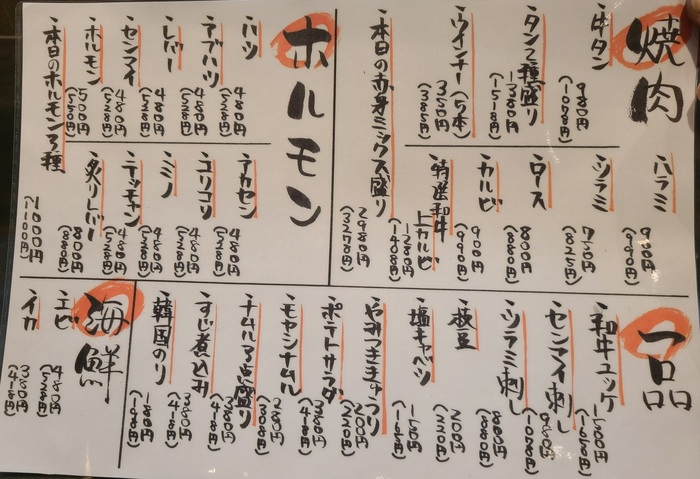 焼肉
牛タン
980円
(1078円)
タン2種盛り
1380円
(1518円)
ウインナー(5本)
350円
(385円)
本日の赤身ミックス盛り
2980円
(3278円)
ハラミ
900円
(990円)
ツラミ
750円
(825円)
ロース
800円
(880円)
カルビ
900円
(990円)
特選和牛上カルビ
1280円
(1408円)
ホルモン
ハツ
480円
(528円)
アブハツ
480円
(528円)
レバー
480円
(528円)
センマイ
480円
(528円)
ホルモン
500円
(550円)
本日のホルモン3種
1000円
(1100円)
アカセン
480円
(528円)
コリコリ
480円
(528円)
ミノ
480円
(528円)
テッチャン
480円
(528円)
炙りレバー
800円
(880円)
一品
和牛ユッケ
1500円
(1650円)
センマイ刺し
980円
(1078円)
ツラミ刺し
800円
(880円)
枝豆
200円
(220円)
塩キャベツ
150円
(165円)
やみつききゅうり
200円
(220円)
ポテトサラダ
380円
(418円)
モヤシナムル
280円
(308円)
ナムル3点盛り
380円
(418円)
すじ煮込み
380円
(418円)
韓国のり
180円
(198円)
海鮮
エビ
480円
(528円)
イカ
380円
(418円)